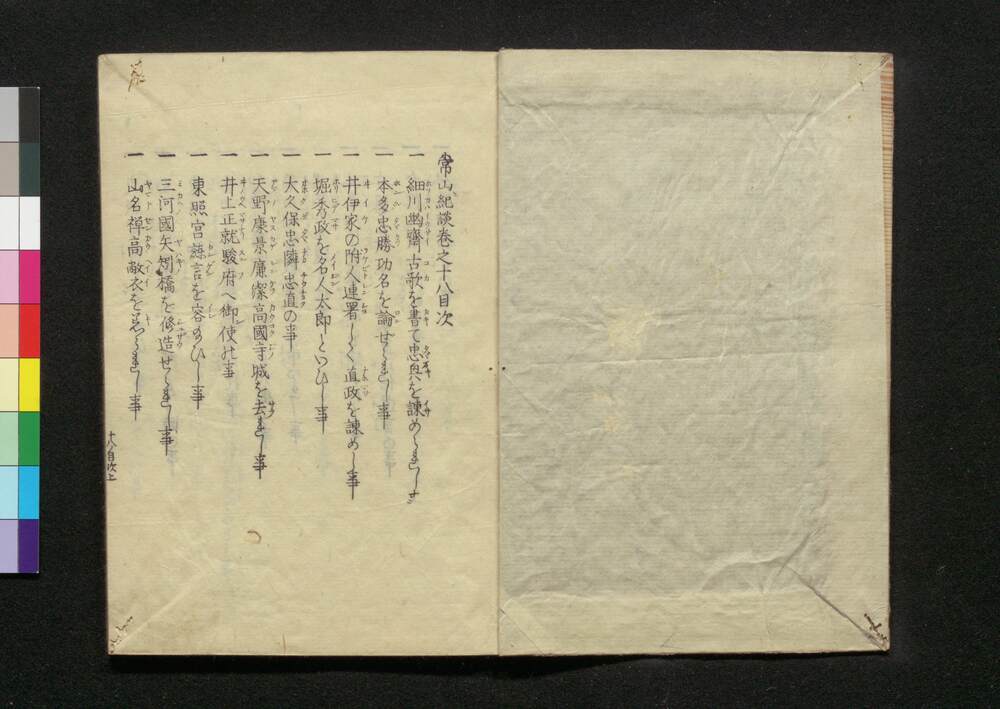 常山紀談巻之十八目次
一 細川幽齋古歌を書て忠興を諫められし事
一 本多忠勝功名を論ぜられし事
一 井伊家の附人連署しく直政を諫めし事
一 堀秀政を名人太郎といひし事
一 大久保忠隣忠直の事
一 天野康景廉潔高國寺城を去れし事
一 井上正就駿府へ御使の事
一 東照宮諫言を容のひし事
一 三河國矢矧橋を修造せられし事
一 山名禅高敝衣を着られし事
十八ノ目次上